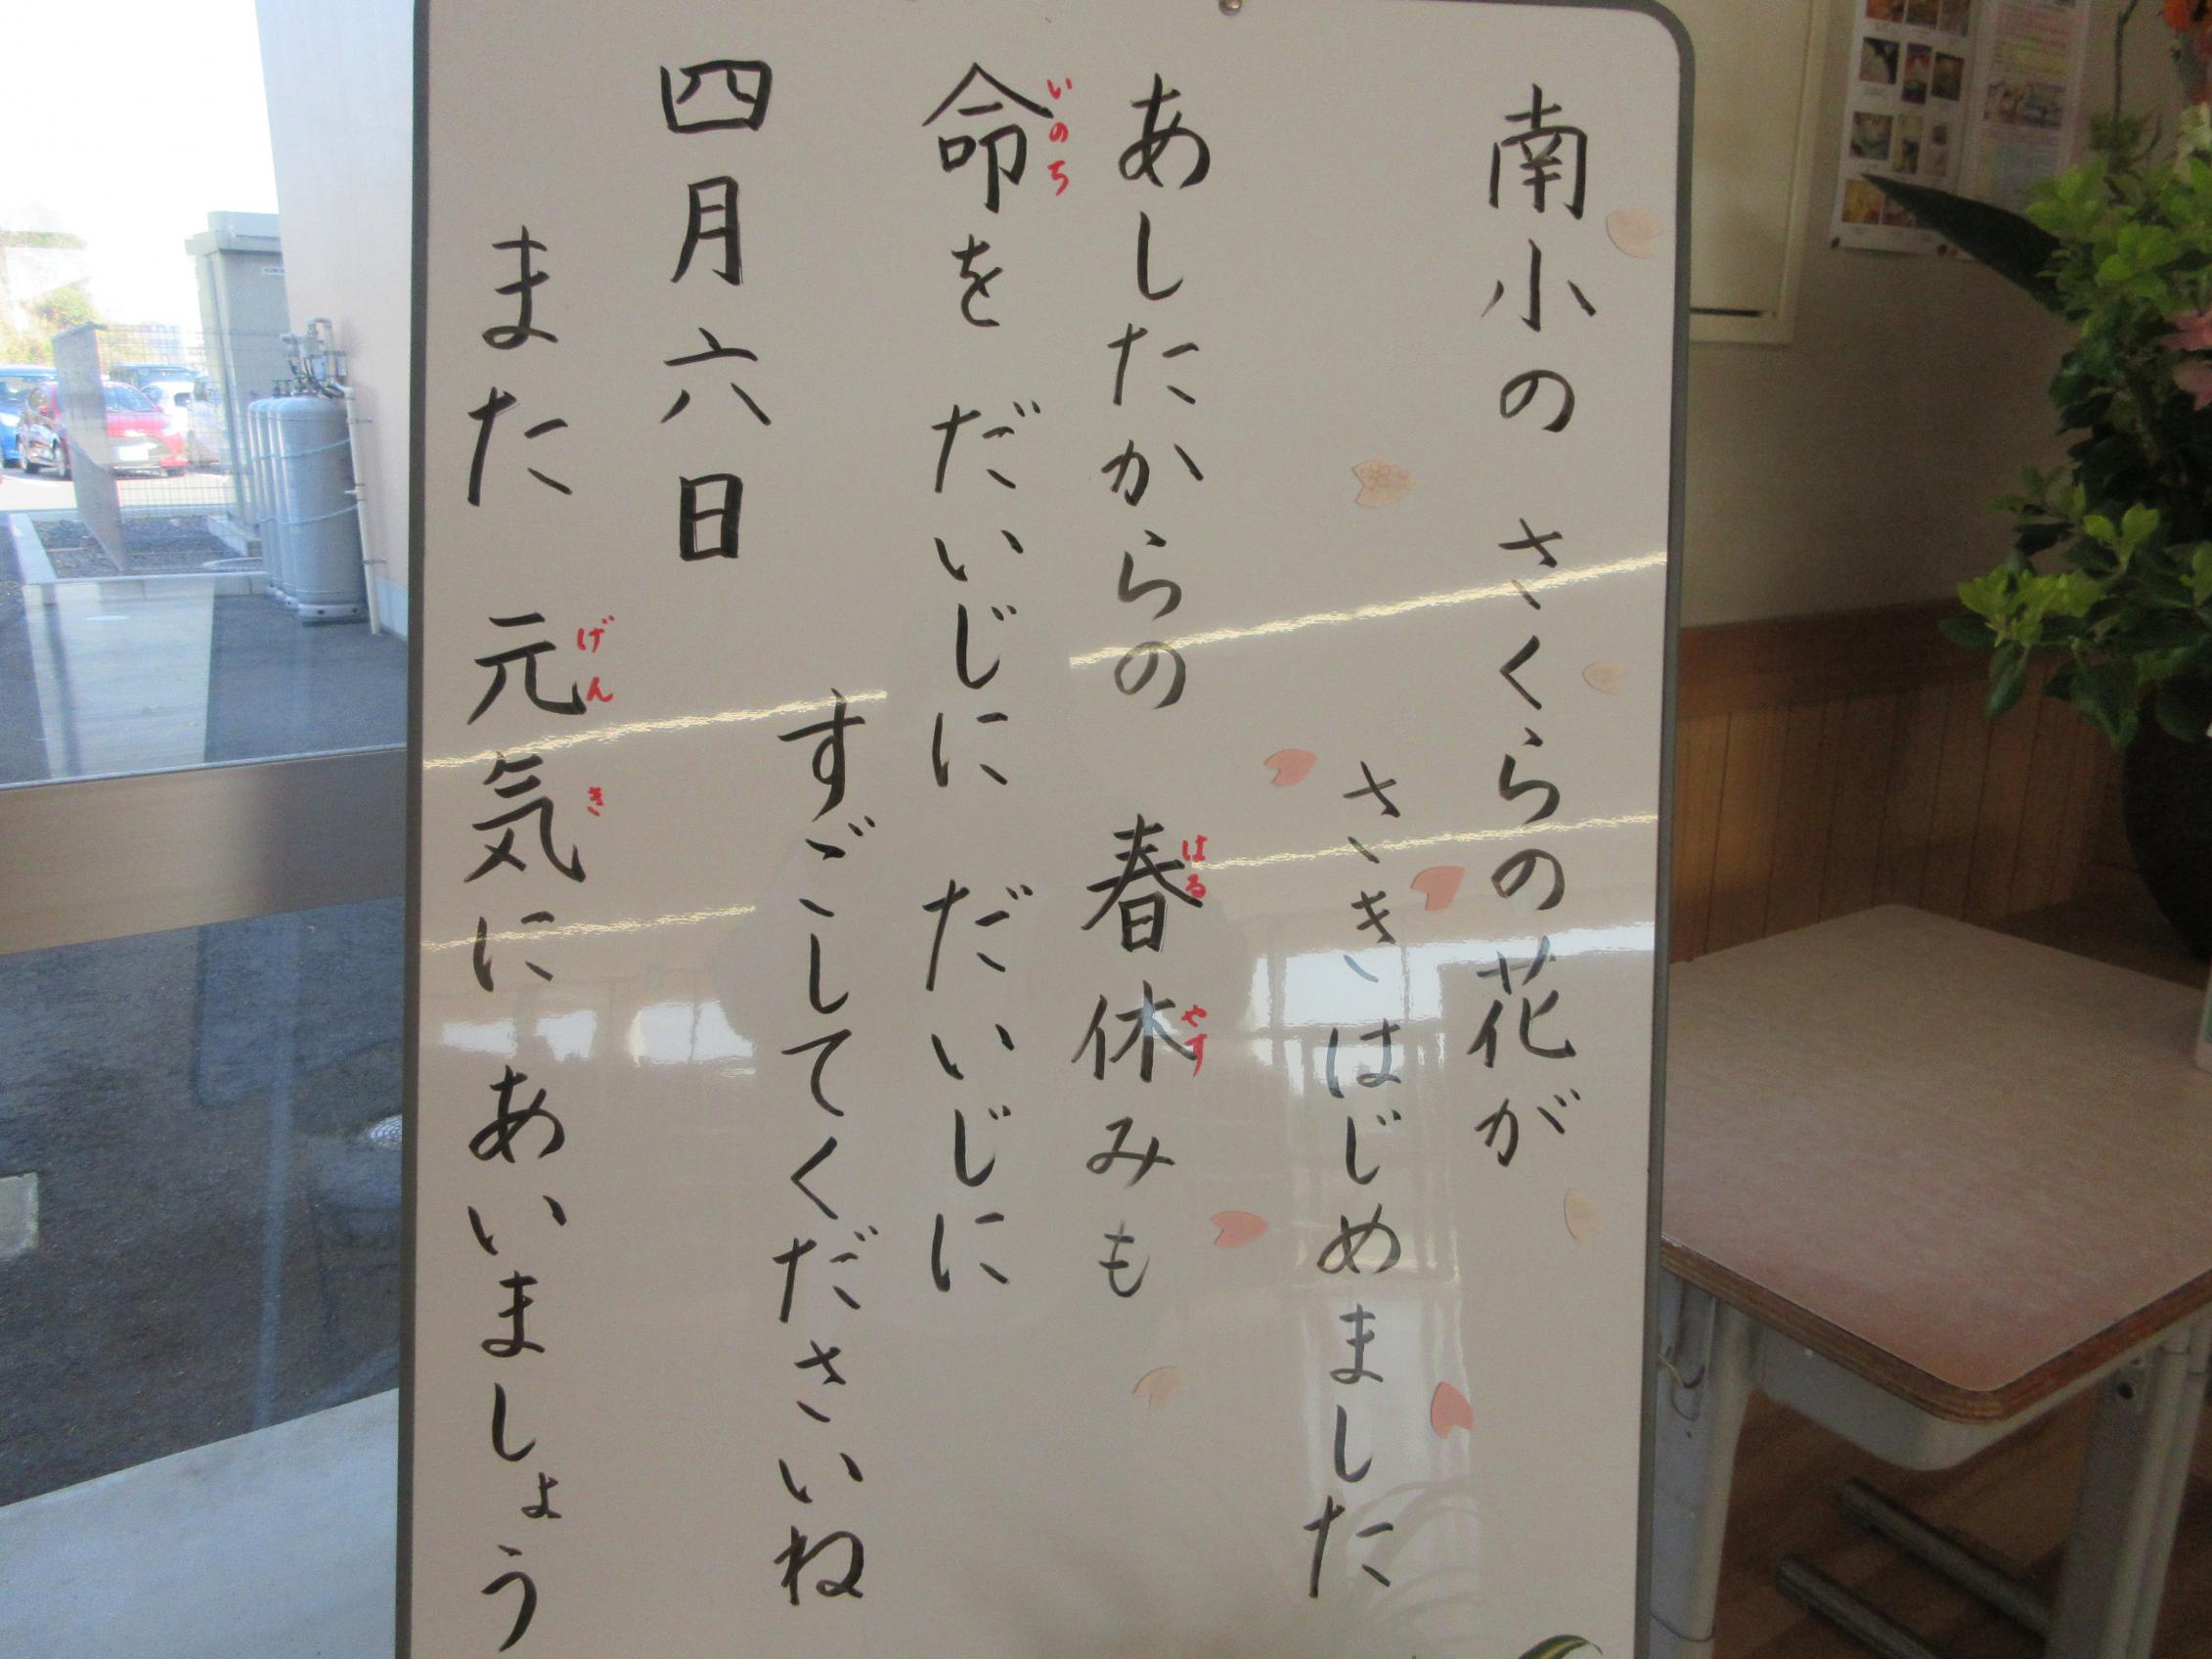 南小の さくらの花が
さきはじめました
あしたからの 春休みも
命を だいじに だいじに
すごしてくださいね
四月六日
また 元気に あいましょう
はる
やす
いのち
げん
き